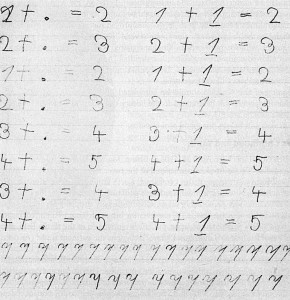 1 + . = 2 1 + 1 = 2
2 + . = 3 2 + 1 = 3
1 + . = 2 1 + 1 = 2
2 + . = 3 2 + 1 = 3
3 + . = 4 3 + 1 = 4
4 + . = 5 4 + 1 = 5
3 + . = 4 3 + 1 = 4
4 + . = 5 4 + 1 = 5